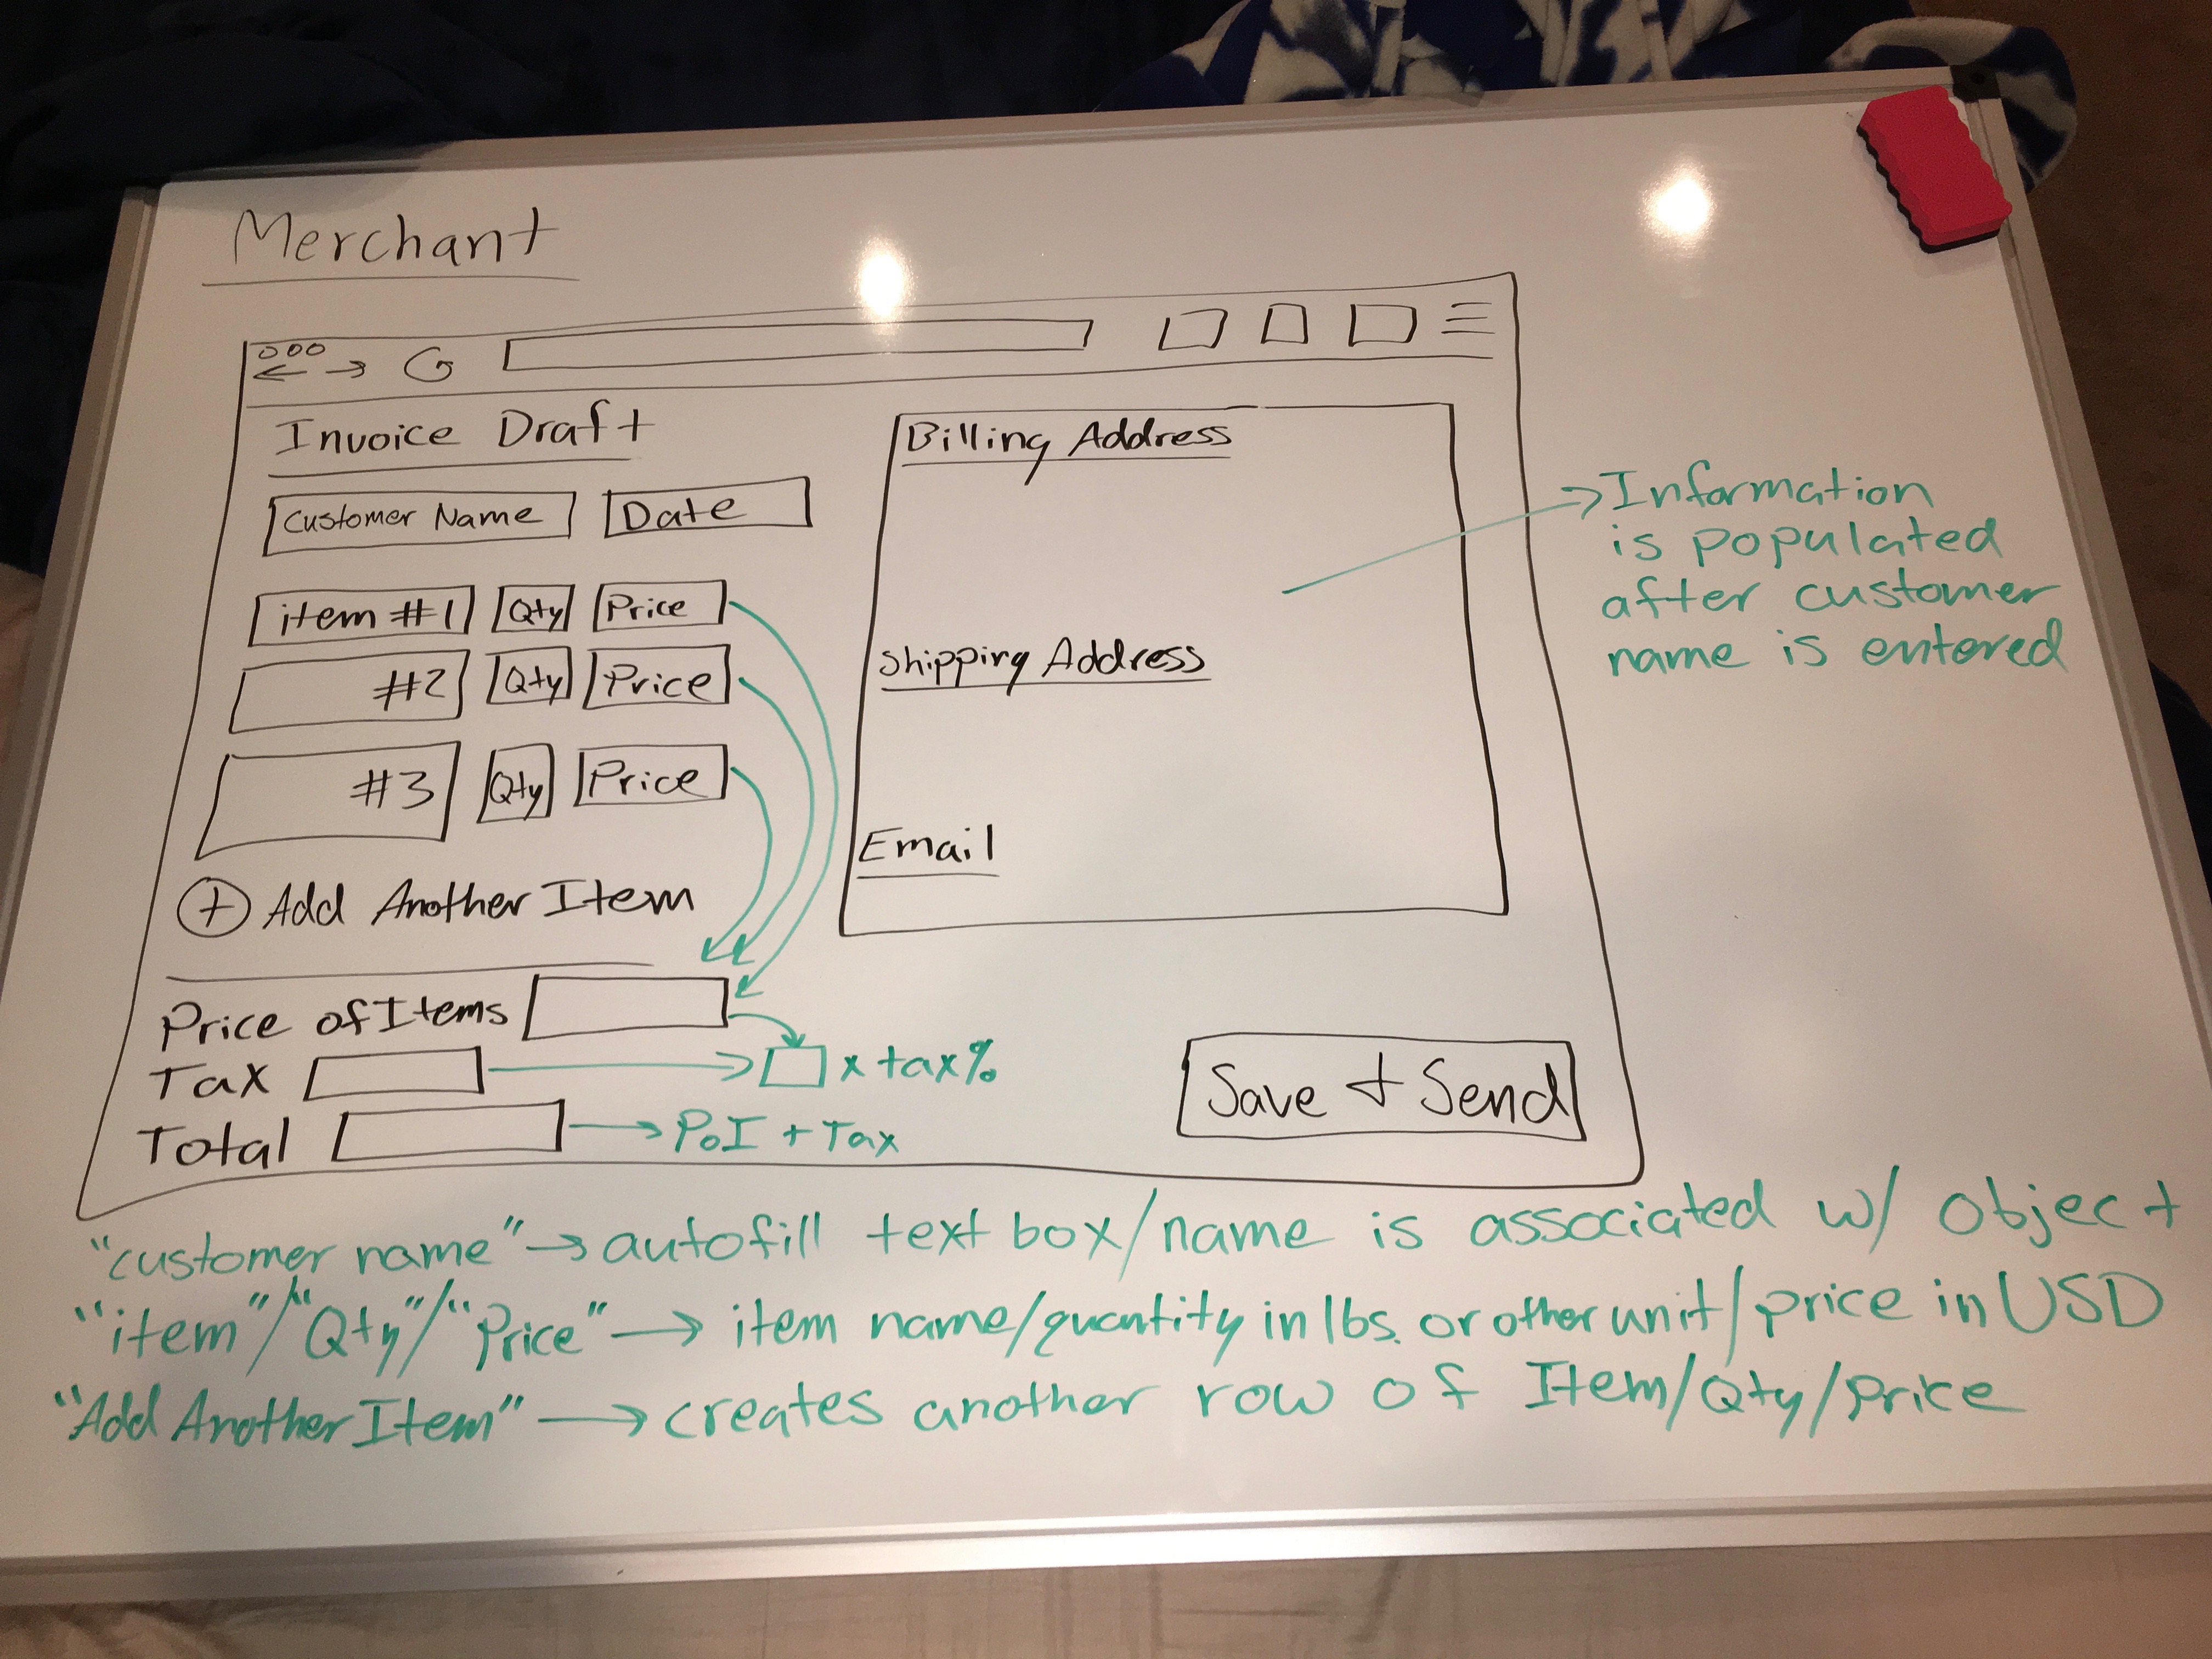 Merchant
Invoice Draft
Customer Name Date
item #1 Qty Price
#2 Qty Price
#3 Qty Price
+ Add Another Item
Price of Items
Tax → x tax%
Total → PoI + Tax
Billing Address
Shipping Address
Email
Save + Send
→ Information
is populated
after customer
name is entered
"customer name" → autofill text box/name is associated w/ object
"item"/"Qty"/"Price" → item name/quantity in lbs. or other unit/price in USD
"Add Another Item" → creates another row of Item/Qty/Price